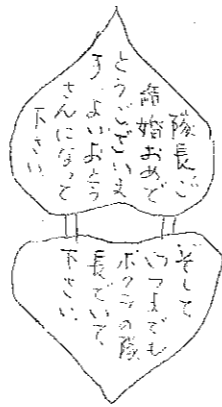 隊長、ご
結婚おめで
とうございま
す。よいおとう
さんになって
下さい。
そして
いつまでも
ボクラの隊
長でいて
下さい。